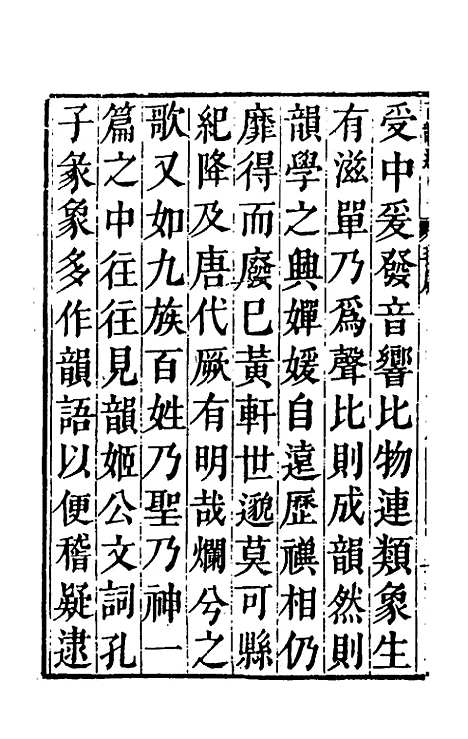 受中爰發音響比物連類象生
有滋單乃爲聲比則成韻然則
韻學之興嬋媛自遠歷禩相仍
靡得而廢巳黃軒世邈莫可縣
紀降及唐代厥有明哉爛兮之
歌又如九族百姓乃聖乃神一
篇之中往往見韻姬公文詞孔
子彖象多作韻語以便稽疑逮